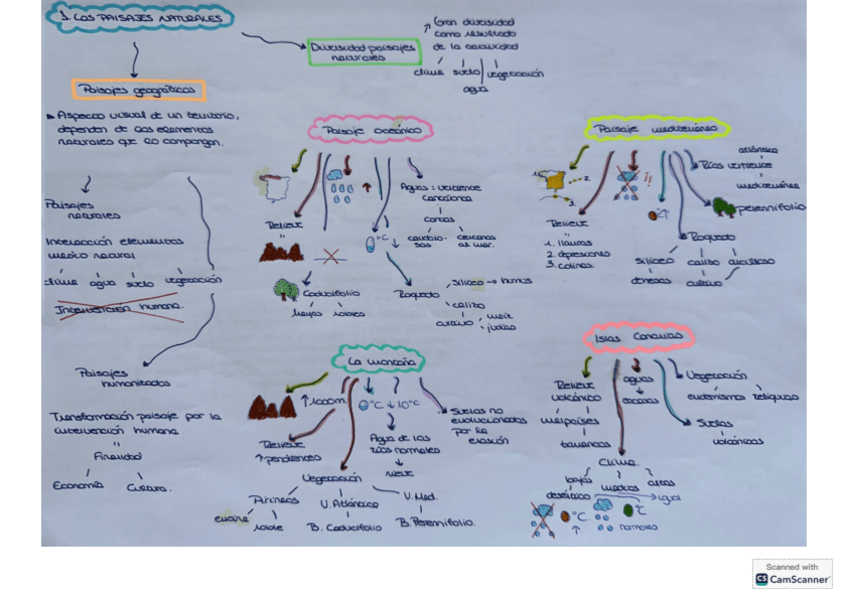 1. LOS PAISAJES NATURALES
Paisajes geográficos
Aspecto visual de un territorio,
dependen de los elementos
naturales que lo compongan.
Paisajes
naturales
Interacción elementos
medio natural
clima agua suelo vegetación
Intervención humana.
Paisajes
humanizados
Transformación paisaje por la
intervención humana
"
Finalidad
Economía Cultura.
Diversidad paisajes
naturales
↑ Gran diversidad
como resultado
de la
clima suelo vegetación
agua
Paisaje oceánico
Relieve
"
°C ↓
Caducifolio
hayas robles
Aguas: vertiente
cantábrica
cortos
caudalosos
cercanos
al mar.
Roquedo
silíceo → humus
calizo
cultivo
maíz
judías
Paisaje mediterráneo
1. 2.
3.
Relieve
"
1. llanuras
2. depresiones
3. colinas.
!!
Ríos vertiente
atlántica
mediterránea
perennifolio
Roquedo
silíceo calizo arcilloso
dehesas cultivo
La montaña
↑ 1000m.
Relieve
↑ pendientes
°C ↓ 10°C
Agua de los
ríos normales
nieve
Suelos no
evolucionados
por la
erosión
Vegetación
Pirineos V. Atlántico V. Med.
encina roble B. Caducifolio B. Perennifolio.
Islas Canarias
Relieve
volcánico
malpaíses
barrancos
aguas
escasas
Vegetación
endemismos reliquias
Suelos
volcánicos
Clima.
bajas medias altas
desértico igual
°C ↑ °C
normales
Scanned with
CS CamScanner